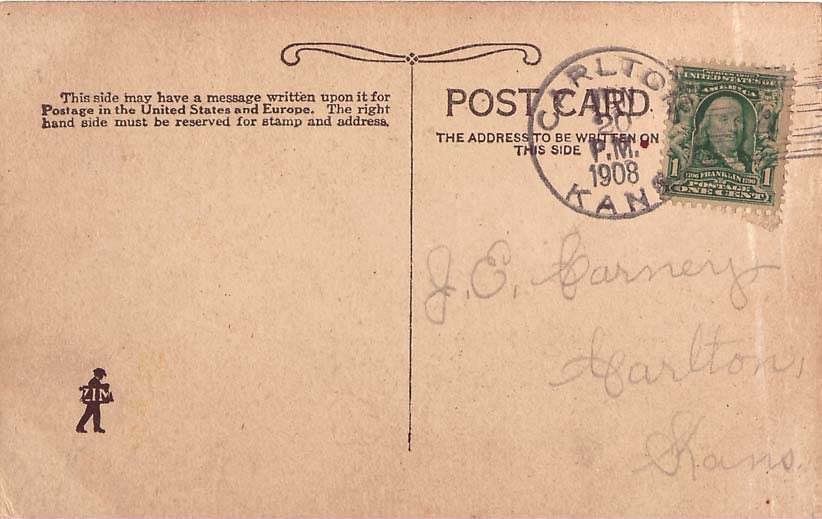 This side may have a message written upon it for
Postage in the United States and Europe. The right
hand side must be reserved for stamp and address.
POST CARD
THE ADDRESS TO BE WRITTEN ON
THIS SIDE
CARLTON
20
P.M.
1908
KANS
UNITED STATES OF
AMERICA
FRANKLIN
1 POSTAGE 1
ONE CENT
J. E. Carney
Carlton,
Kans.
ZIM